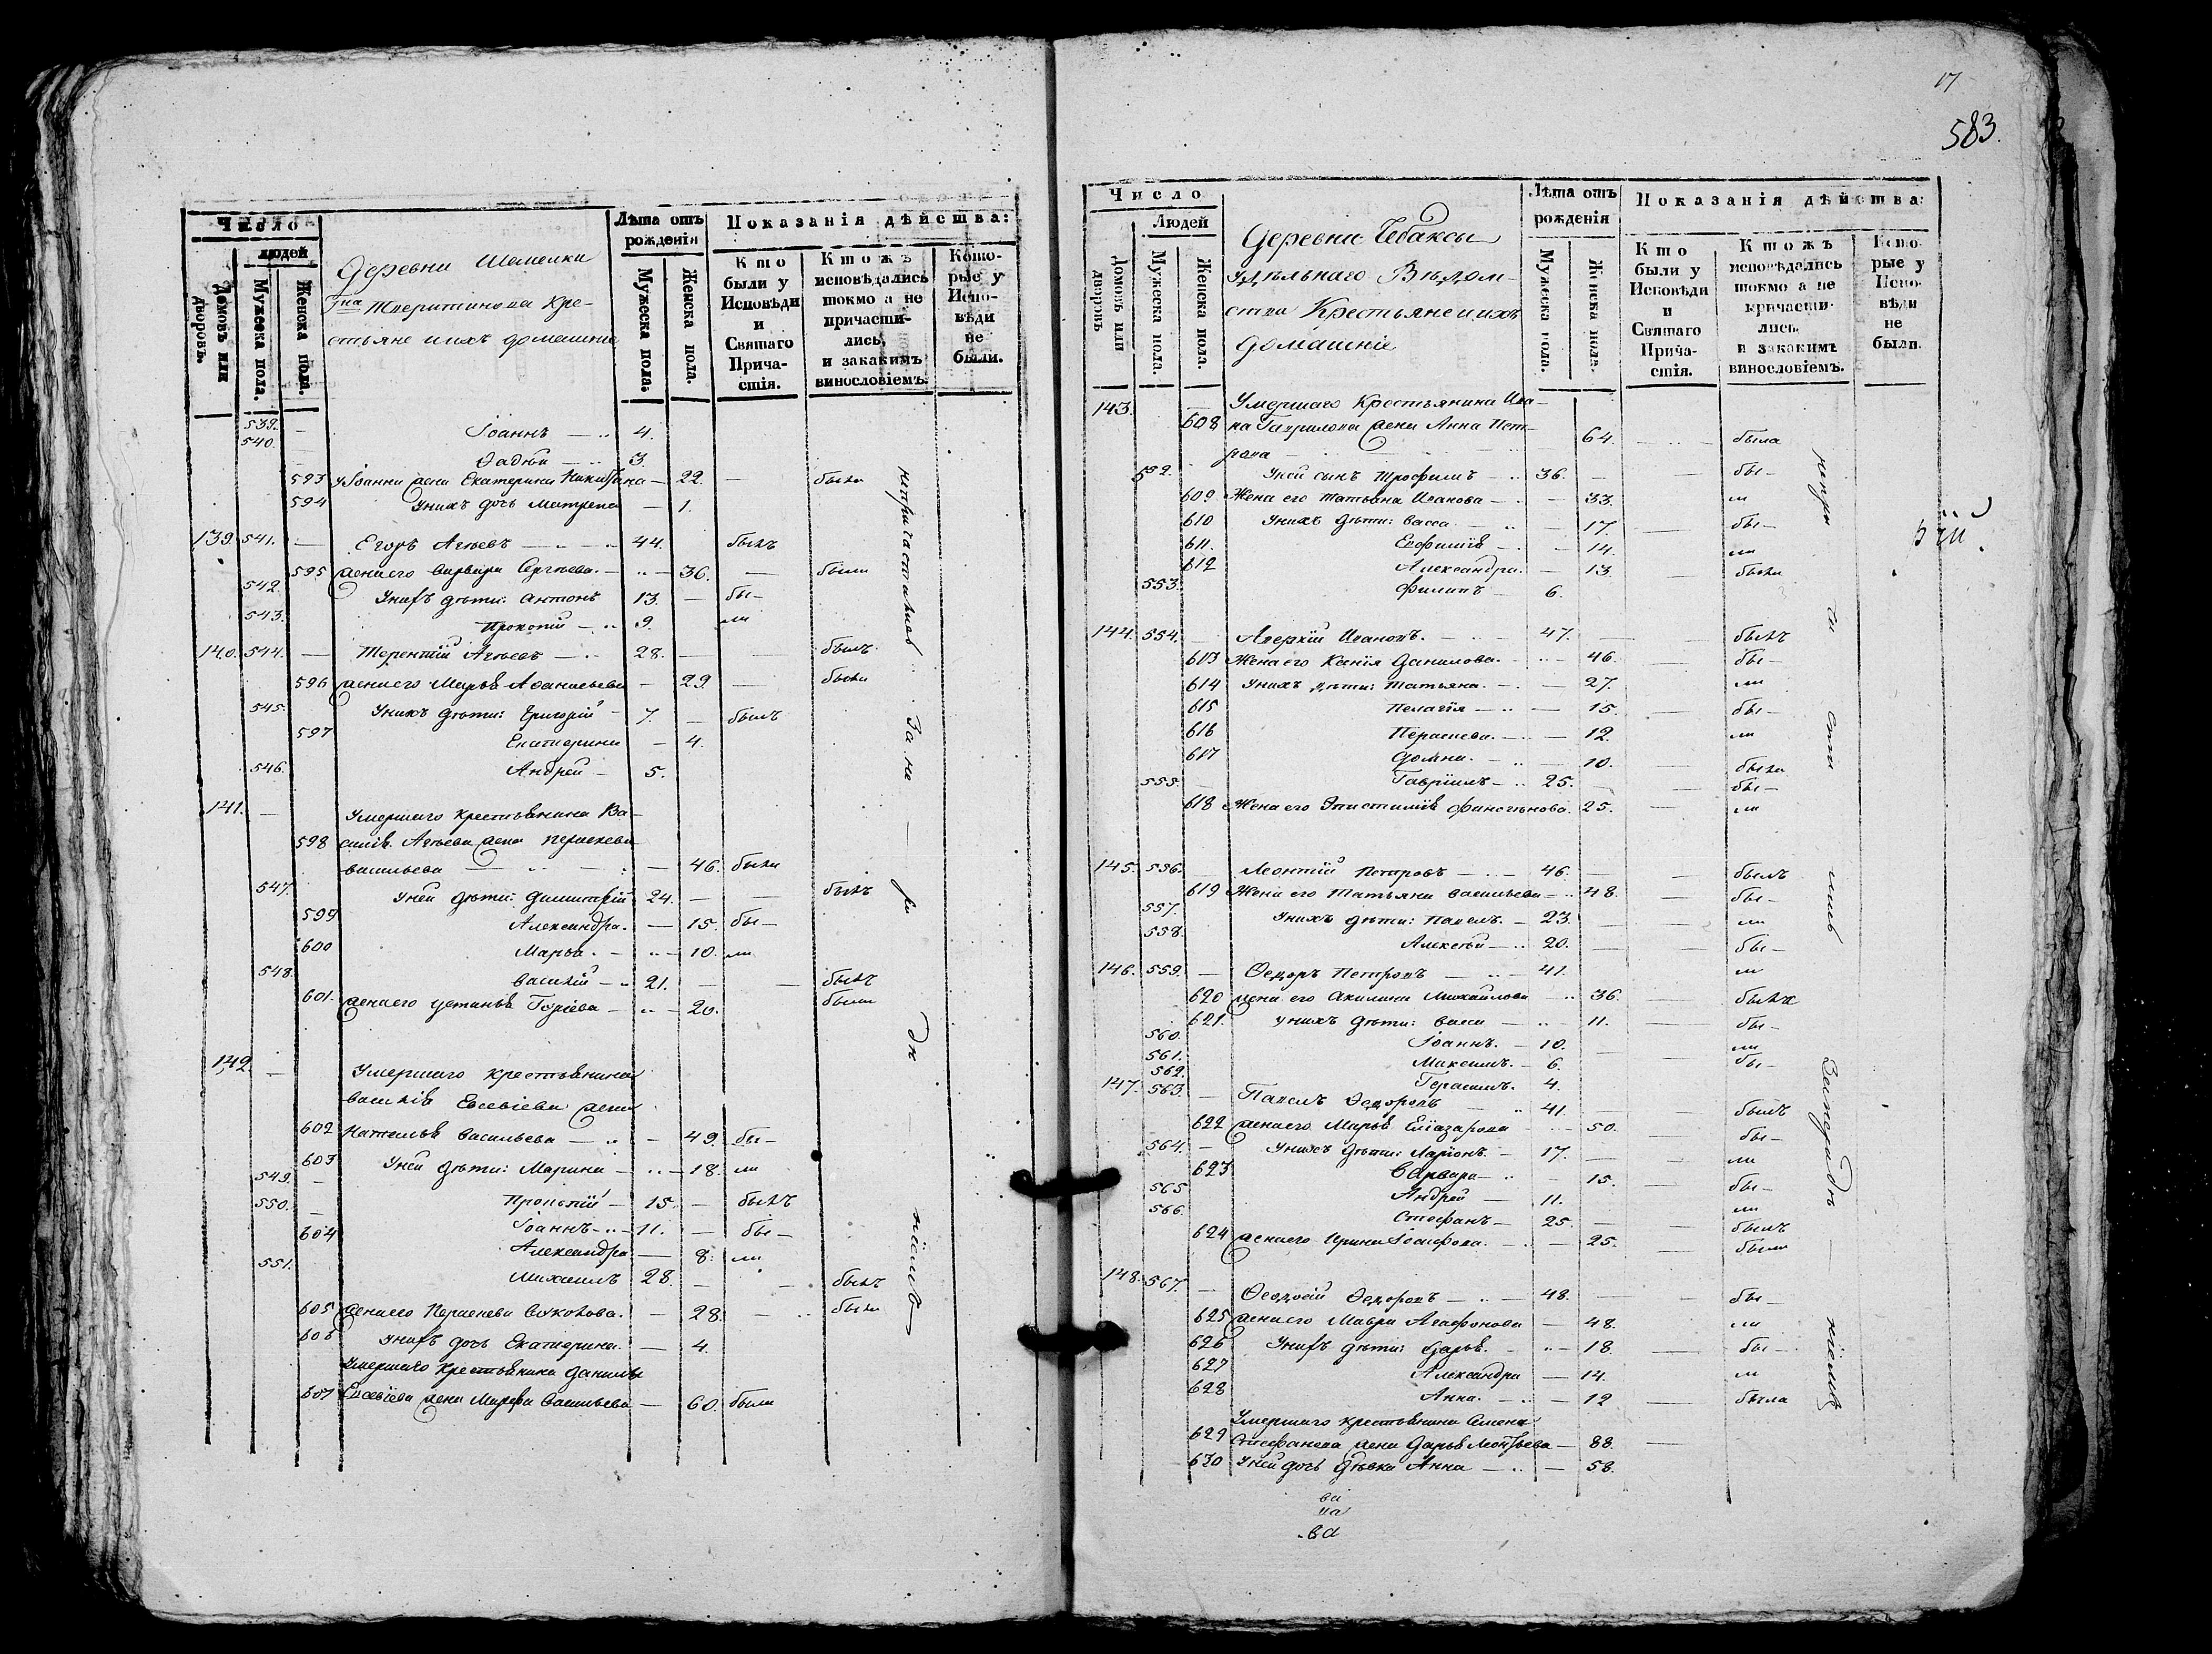 Число
Домовъ или дворовъ.
людей
Мужеска пола.
Женска пола.
Деревни
Г-на Тверитинова Кре-
стьяне и ихъ домашніе
Лѣта отъ рожденія
Мужеска пола.
Женска пола.
Показанія дѣйства:
Кто были у Исповѣди и Святаго Прича-стія.
Ктожъ исповѣдались токмо а не причасти-лись, и закакимъ винословіемъ.
Кото-рые у Испо-вѣди не были.
539. — Іоаннъ — 4.
540. Фадѣй — 3.
593 у Іоанна жена Екатерина — 22. — была
594 У нихъ дочь Матрена — 1.
139. 541. — Егоръ Агѣевъ — 44. былъ
595 жена его Варвара Сергѣева. — 36. — была
542. У нихъ дѣти: Антонъ 13. — бы-
543. Прокопій — 9. ли
140. 544. — Терентій Агѣевъ — 28. — былъ
596 жена его Марья Аѳанасьева — 29. — была
545. У нихъ дѣти: Григорій — 7. — былъ
597 Екатерина — 4.
546. Андрей — 5.
141. — Умершаго крестьянина Ва-
598 силія Агѣева жена Параскева
Васильева — 46. была
547. У ней дѣти: Димитрій 24. — былъ
599 Александра. — 15. бы-
600 Марья. — 10. ли
548. Василій — 21. — былъ
601. жена его Устинья — 20. была
142. — Умершаго крестьянина
Василія Евсевіева жена
602 Наталья Васильева — 49. бы-
603 У ней дѣти: Марина — 18. ли
549. — Прокопій — 15. — былъ
550. — Іоаннъ — 11. — бы-
604 Александра — 8. ли
551. Михаилъ 28. — былъ
605 жена его Параскева — 28. — была
606 У нихъ дочь Екатерина. — 4.
Умершаго крестьянина Данилы
607 Евсевіева жена Марѳа Васильева — 60. была
непричастились за нерадѣніемъ
17
583.
Число
Домовъ или дворовъ
Людей
Мужеска пола.
Женска пола.
Деревни Чебаксы
Удѣльнаго Вѣдом-
ства Крестьяне и ихъ
домашніе
Лѣта отъ рожденія
Мужеска пола.
Женска пола.
Показанія дѣйства:
Кто были у Исповѣди и Святаго Прича-стія.
Ктожъ исповѣдались токмо а не причасти-лись, и закакимъ винословіемъ.
Кото-рые у Испо-вѣди не были.
143. — Умершаго Крестьянина Ива-
608 на Гаврилова жена Анна Пет-
рова — 64. — была
552. У ней сынъ Трофимъ — 36. — бы-
609 Жена его Татьяна Иванова — 33. ли
610 У нихъ дѣти: Васса — 17. — бы-
611. Евфимія — 14. ли
612 Александра. — 13. — была
553. Филипъ — 6.
144. 554. — Аверкій Ивановъ. — 47. — былъ
613 Жена его Ксенія Данилова. — 46. — бы-
614 У нихъ дѣти: Татьяна. — 27. ли
615 Пелагія — 15. — бы-
616 Параскева. — 12. ли
617 Домна. — 10. — была
555. Гавріилъ — 25. — бы-
618 Жена его Эпистимія 25. — ли
145. 556. Леонтій Петровъ — 46. — былъ
619 Жена его Татьяна Васильева — 48. — бы-
557. У нихъ дѣти: Павелъ. — 23. — ли
558. Алексѣй — 20. — бы-
146. 559. — Ѳедоръ Петровъ — 41. ли
620 жена его Акилина Михайлова — 36. — была
621. у нихъ дѣти: Васса — 11. — бы-
560. Іоаннъ. — 10. — ли
561. Максимъ. — 6. — бы-
562. Герасимъ. 4.
147. 563. — Павелъ Ѳедоровъ — 41. — былъ
622 жена его Марья Елiазарова — 50. — бы-
564. — У нихъ дѣти: Ларіонъ. — 17. — ли
623 Варвара — 15. — бы-
565 Андрей — 11. ли
566. Стефанъ — 25. — былъ
624 жена его Ирина Іосифова. — 25. — была
148. 567. — Ѳедосій Ѳедоровъ — 48. — бы-
625 жена его Мавра Агафонова — 48. — ли
626 У нихъ дѣти: Дарья. — 18. — бы-
627 Александра — 14. ли
628 Анна. — 12 — была
Умершаго крестьянина Семена
629 Стефанова жена Дарья Леонтьева — 88. —
630 У ней дочь дѣвка Анна — 58.
непричастились За нерадѣніемъ
ва
на
ва